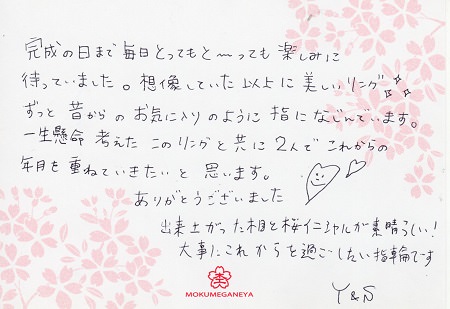 完成の日まで毎日とってもと〜っても楽しみに
待っていました。想像していた以上に美しいリング
ずっと昔からのお気に入りのように指になじんでいます。
一生懸命考えたこのリングと共に2人でこれからの
年月を重ねていきたいと思います。
ありがとうございました
出来上がった相と桜イニシャルが素晴らしい!
大事にこれからを過ごしたい指輪です
Y&S
MOKUMEGANEYA